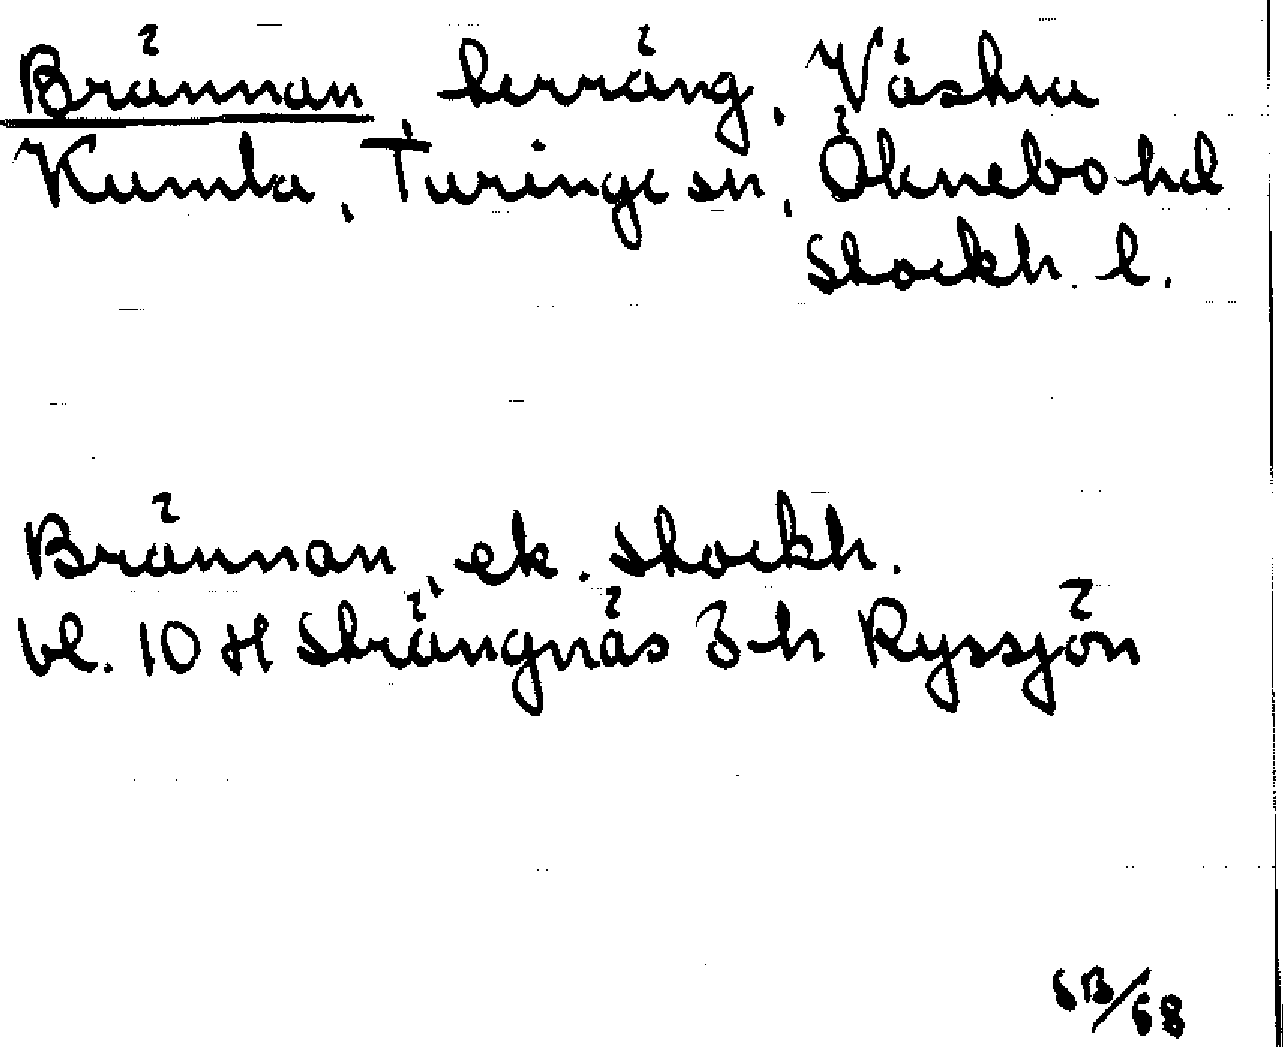 Brännan terräng, Västra
Kumla, Turinge sn, Öknebo hd
Stockh. l.
Brännan, ek. Stockh.
bl. 10 H Strängnäs 3 h Ryssjön